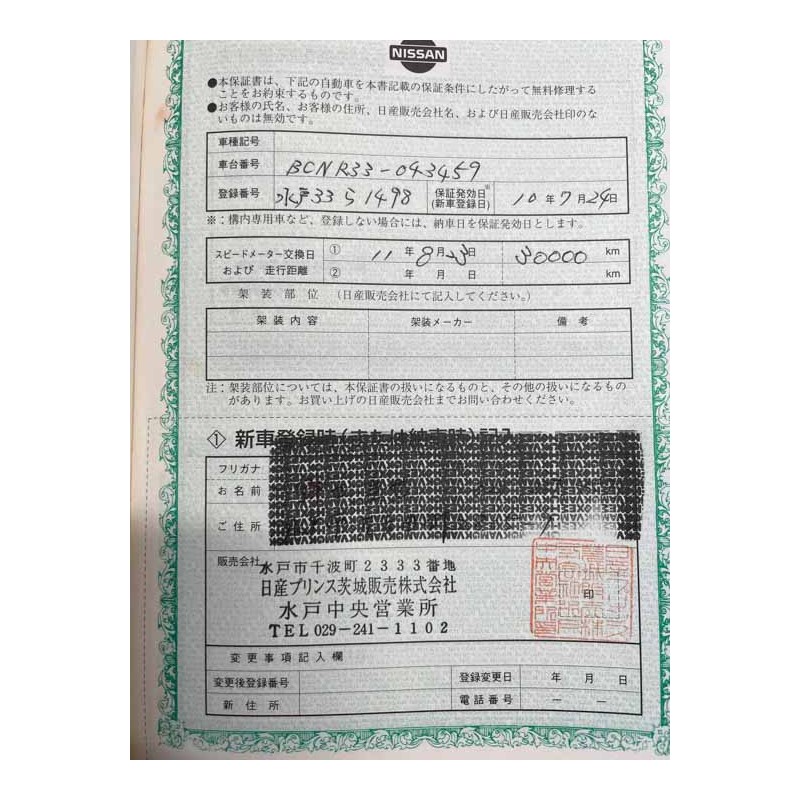 NISSAN
●本保証書は、下記の自動車を本書記載の保証条件にしたがって無料修理する
ことをお約束するものです。
●お客様の氏名、お客様の住所、日産販売会社名、および日産販売会社印のな
いものは無効です。
車種記号
車台番号 BCNR33-043459
登録番号 水戸33ら1498 保証発効日※ (新車登録日) 10年7月24日
※：構内専用車など、登録しない場合には、納車日を保証発効日とします。
スピードメーター交換日 ① 11年8月3日 30000 km
および 走行距離 ② 年 月 日 km
架装部位 （日産販売会社にて記入してください。）
架装内容 架装メーカー 備考
注：架装部位については、本保証書の扱いになるものと、その他の扱いになるもの
があります。お買い上げの日産販売会社までお問い合わせください。
① 新車登録時(または納車時)記入
フリガナ
お名前
ご住所
販売会社
水戸市千波町2333番地
日産プリンス茨城販売株式会社
水戸中央営業所
TEL 029-241-1102
印
変更事項記入欄
変更後登録番号 登録変更日 年 月 日
新住所 電話番号 — —